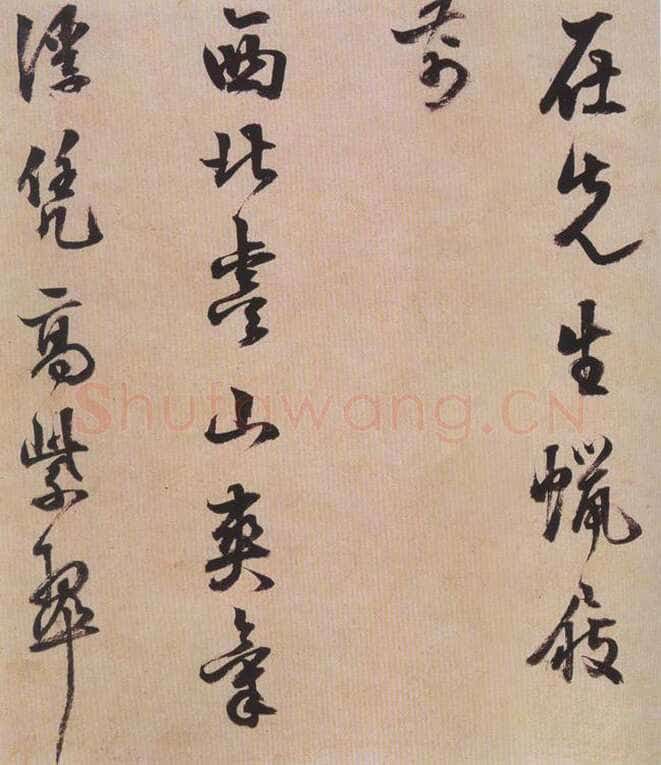 在先生蠟屐
前
西北山爽氣
浮凭高紫翠
Shufawang.CN